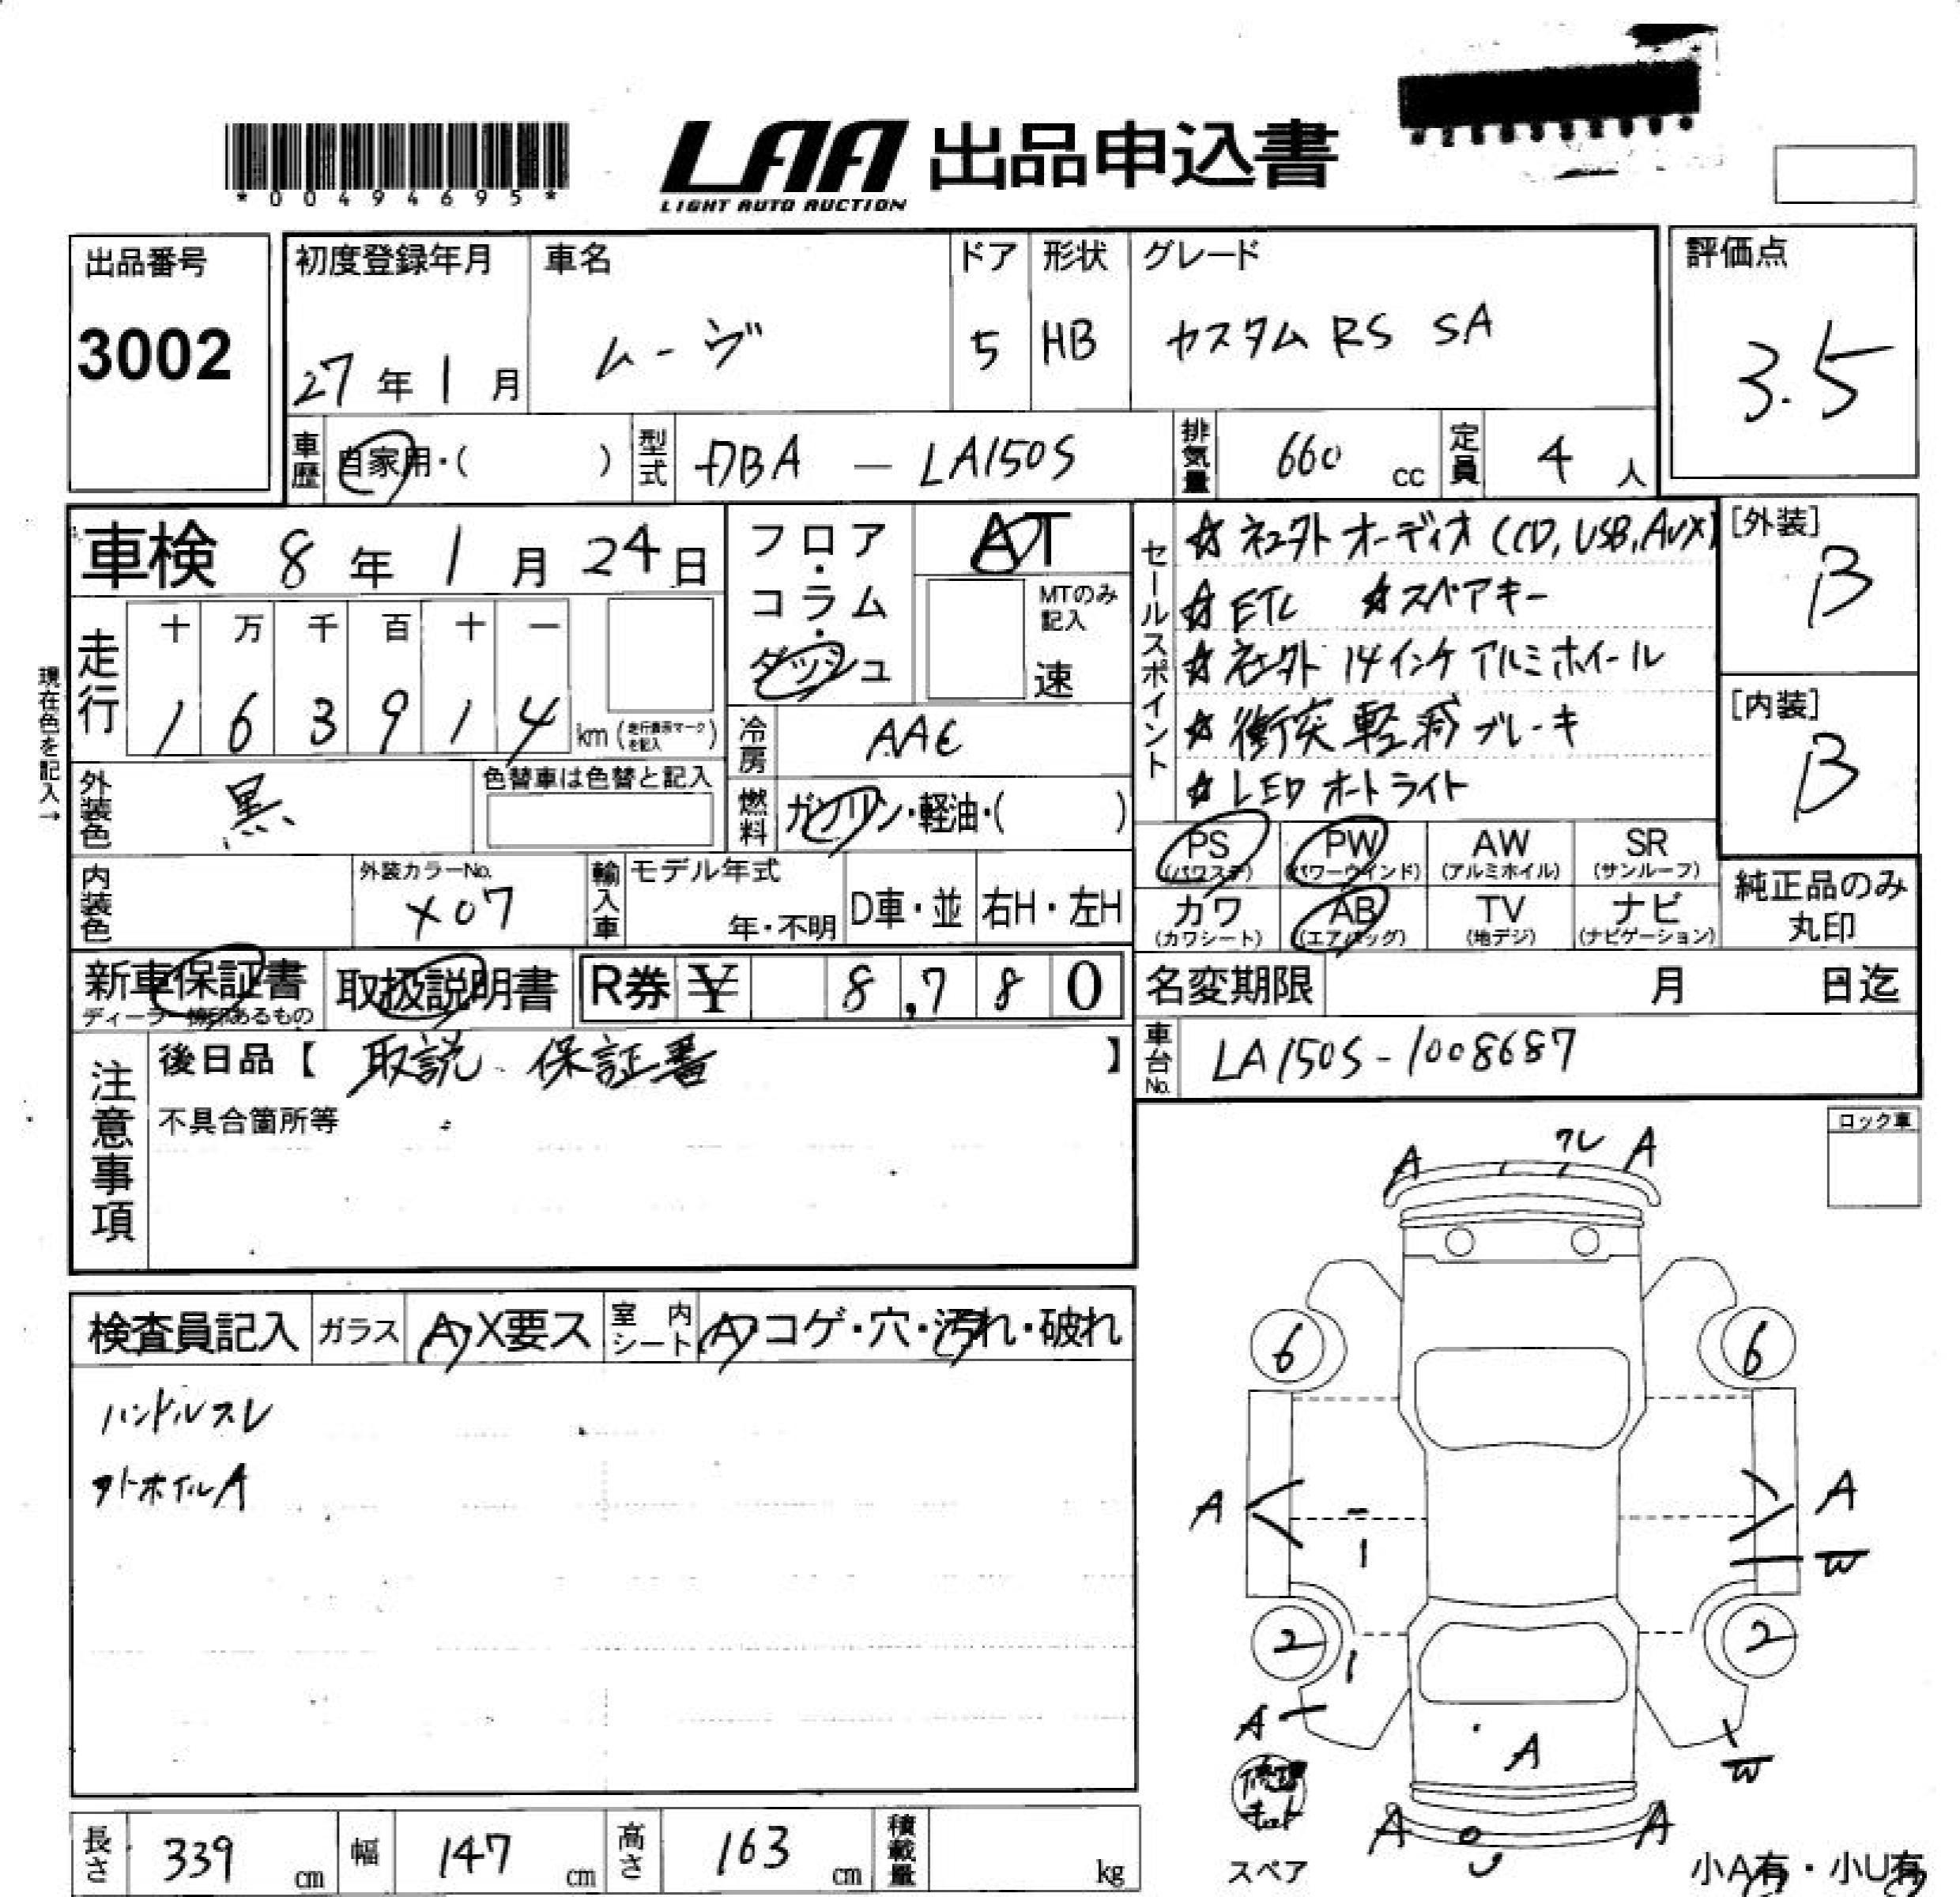 *00494695*
LAA 出品申込書
LIGHT AUTO AUCTION
出品番号
3002
初度登録年月 車名 ドア 形状 グレード
27年 1月 ムーヴ 5 HB カスタム RS SA
評価点
3.5
車歴 自家用・( ) 型式 DBA - LA150S 排気量 660 cc 定員 4 人
車検 8年 1月 24日
フロア・コラム・ダッシュ
AT
MTのみ記入
速
現在色を記入→
走行
十 万 千 百 十 一
1 6 3 9 1 4 km (走行表示マークを記入)
冷房 AAC
外装色 黒
色替車は色替と記入
燃料 ガソリン・軽油・( )
内装色
外装カラーNo.
X07
輸入車 モデル年式
年・不明 D車・並 右H・左H
セールスポイント
☆社外オーディオ(CD,USB,AUX)
☆ETC ☆スペアキー
☆社外 14インチ アルミホイール
☆衝突軽減ブレーキ
☆LEDオートライト
PS (パワステ) PW (パワーウインド) AW (アルミホイル) SR (サンルーフ)
カワ (カワシート) AB (エアバッグ) TV (地デジ) ナビ (ナビゲーション)
[外装]
B
[内装]
B
純正品のみ
丸印
新車保証書
ディーラー捺印あるもの
取扱説明書
R券 ¥ 8,780
名変期限 月 日迄
車台No. LA150S-1008687
注意事項
後日品【 取説、保証書 】
不具合箇所等
ロック車
検査員記入 ガラス A・X要ス 室内シート A・コゲ・穴・汚れ・破れ
ハンドルスレ
アトホイルA
A ワレ A
6 6
A A
W
2 2
A W
A
修理キット
A U A
スペア
小A有・小U有
長さ 339 cm 幅 147 cm 高さ 163 cm 積載量 kg